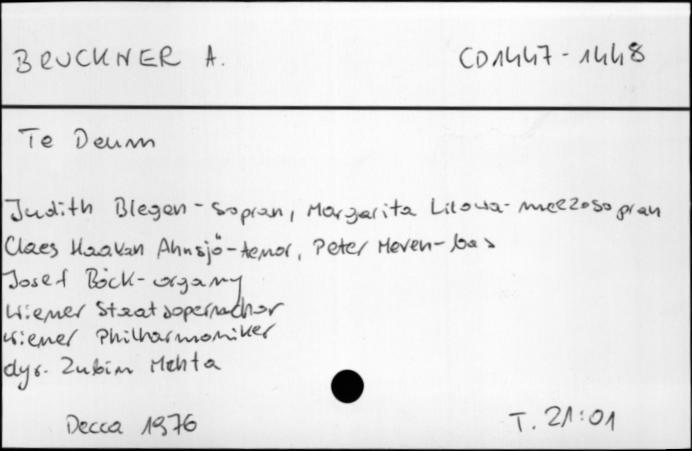 BRUCKNER A. CD1447-1448
Te Deum
Judith Blegen - sopran, Margarita Lilowa - mezzosopran
Claes Haakan Ahnsjö - tenor, Peter Meven - bas
Josef Böck - organy
Wiener Staatsopernchor
Wiener Philharmoniker
dyr. Zubin Mehta
Decca 1976 T. 21:01